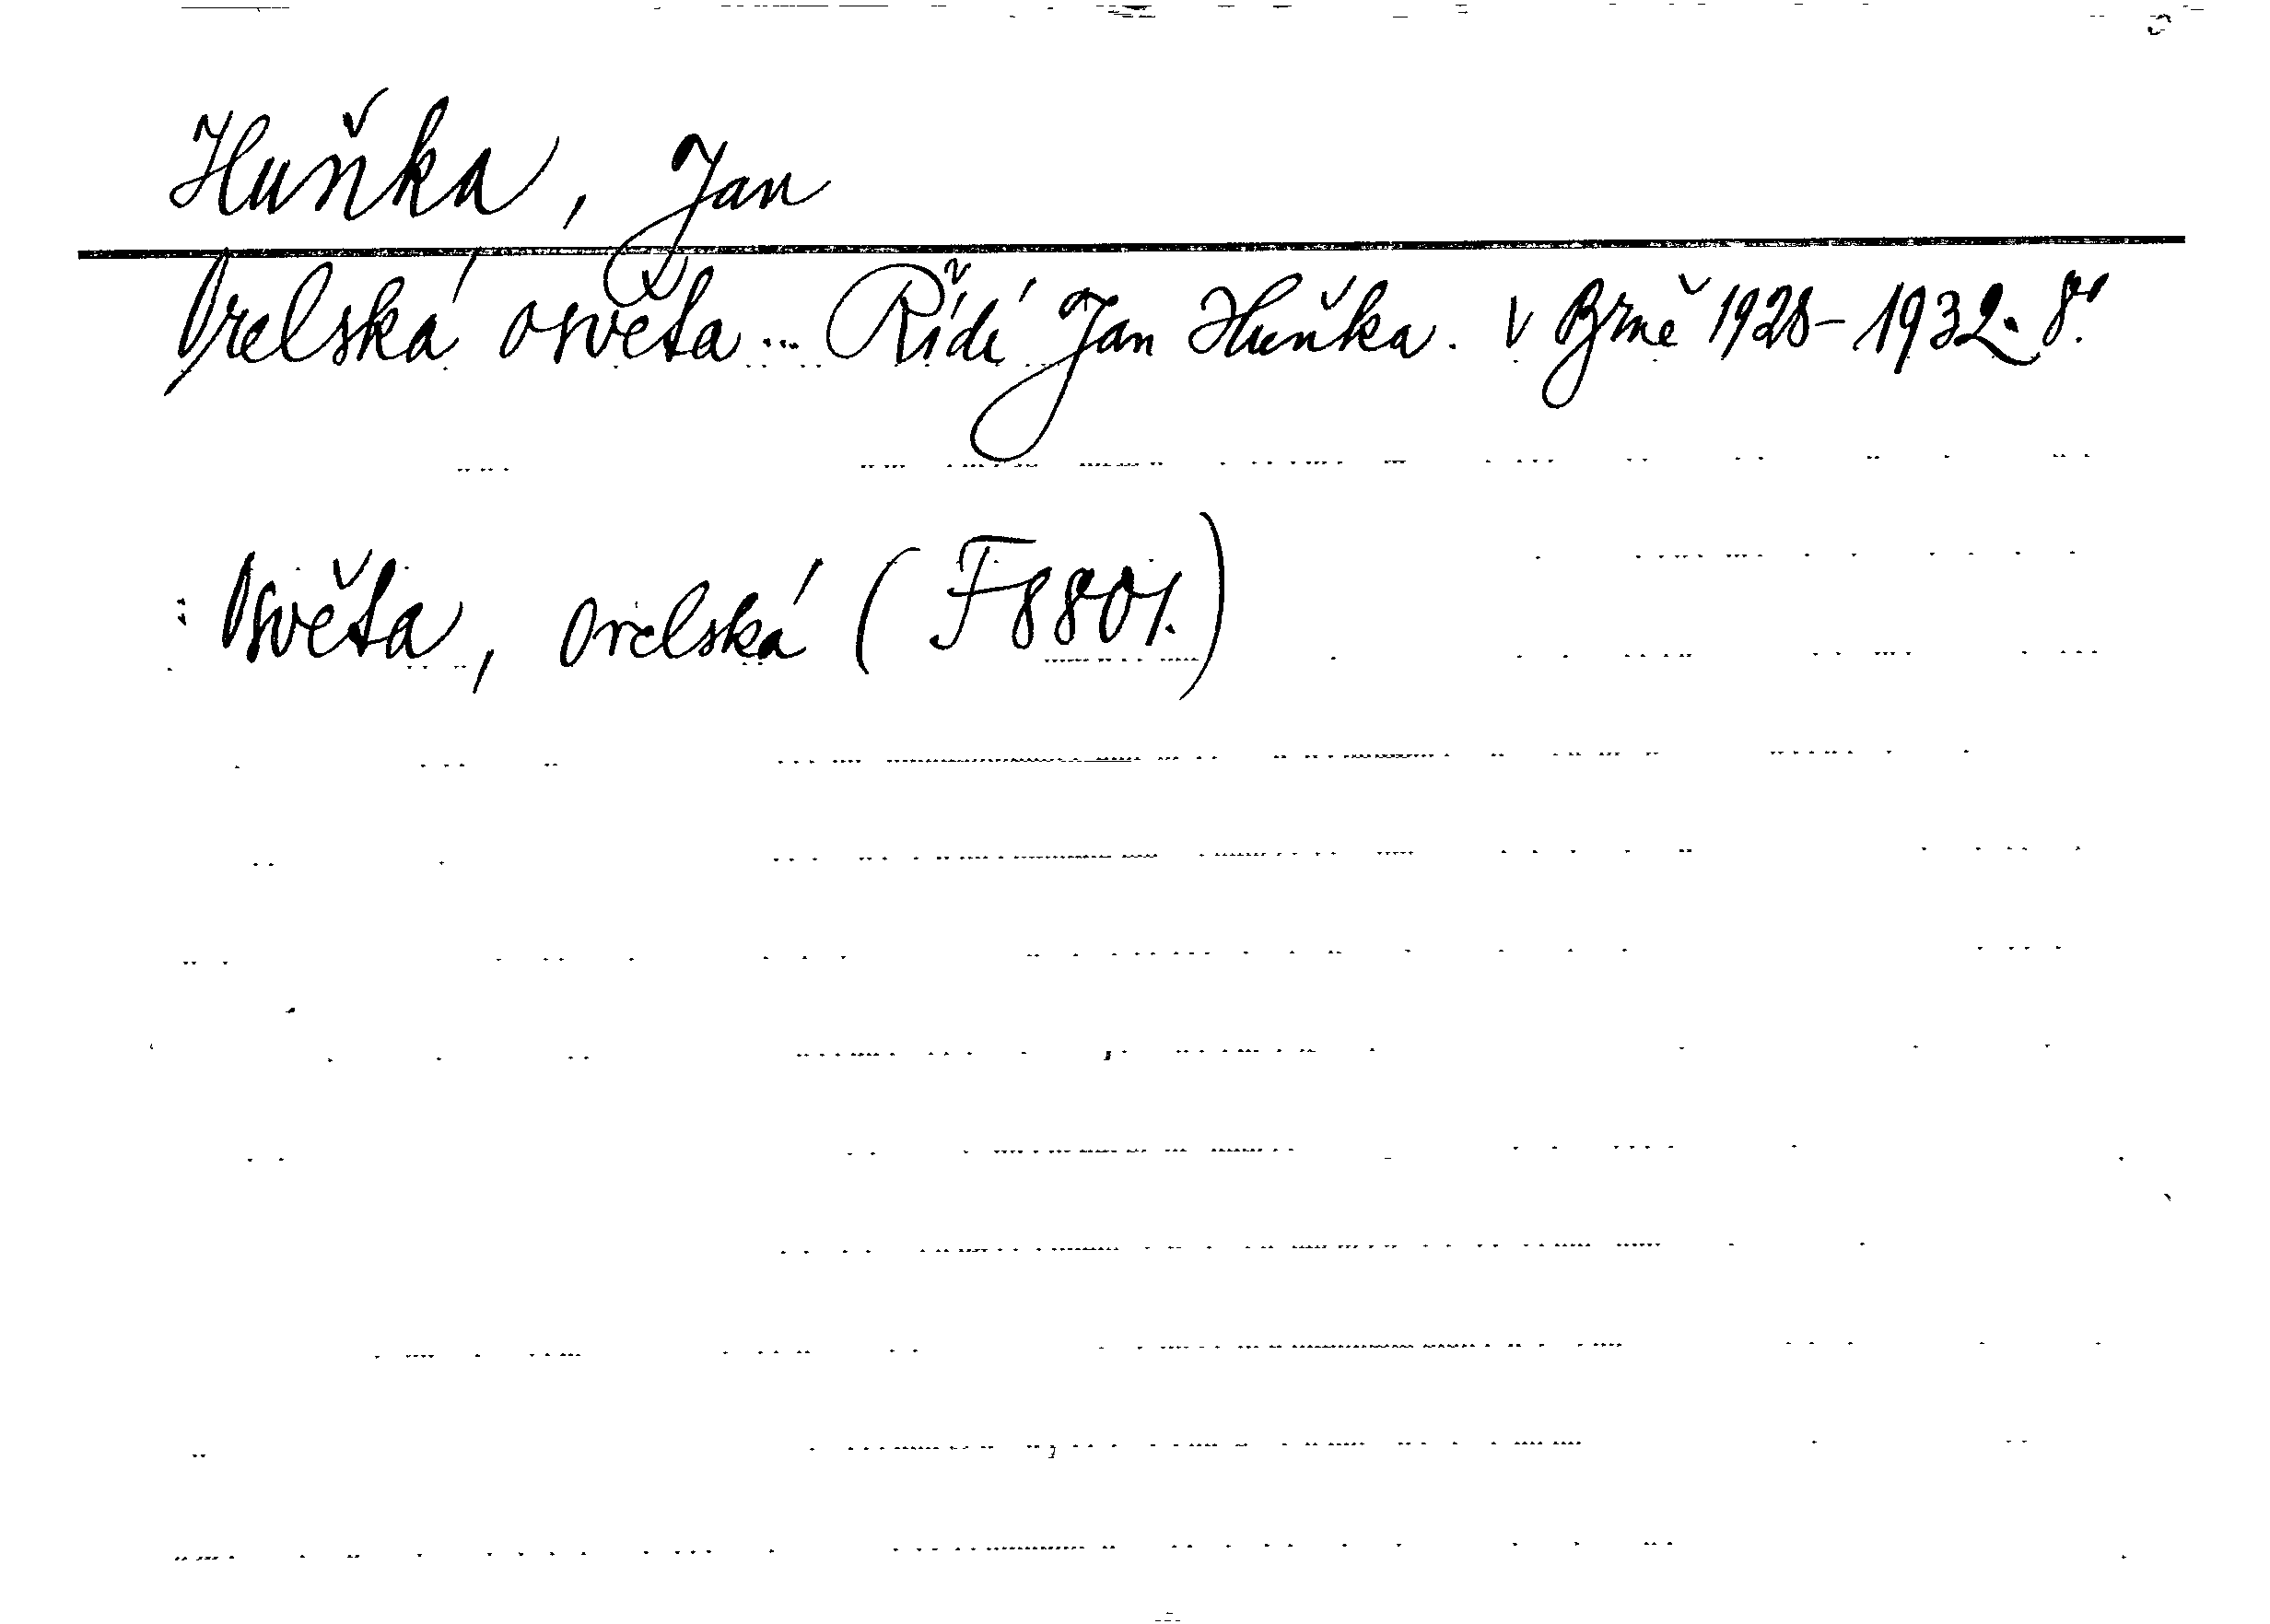 Huňka, Jan
Orelská osvěta... Řídí Jan Huňka. V Brně 1928-1932. 8°.
: Osvěta, orelská (F8801.)